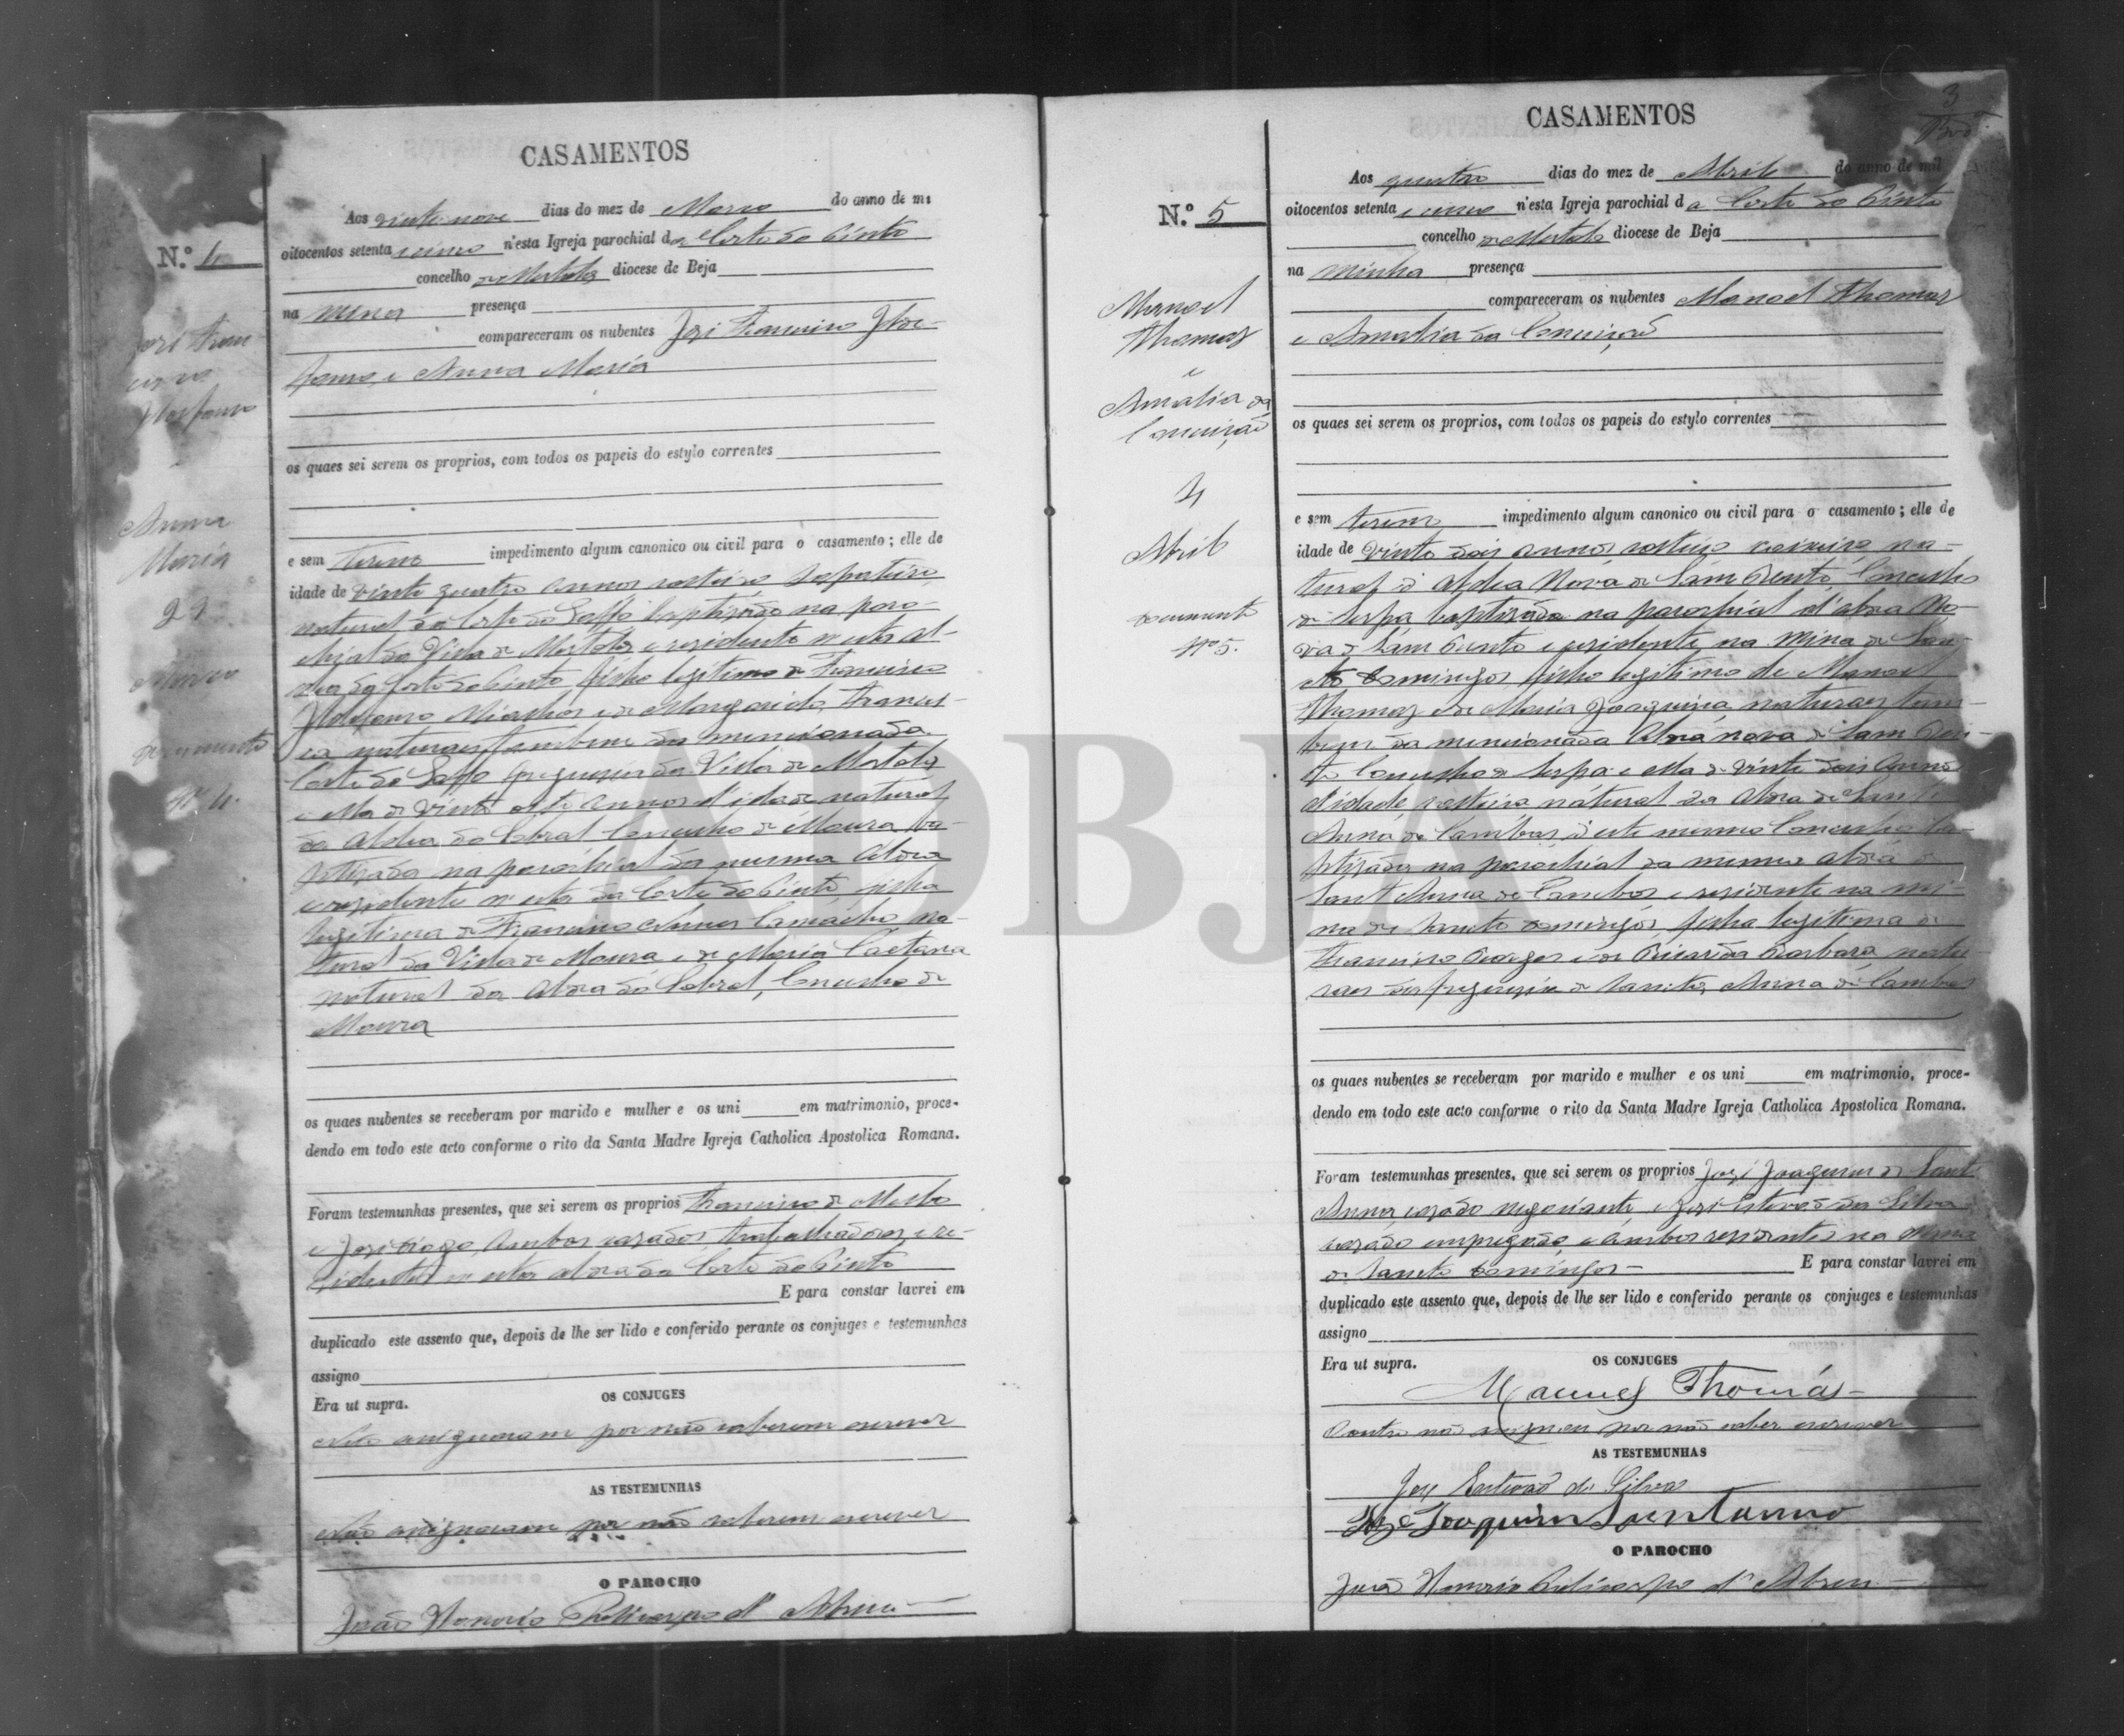 CASAMENTOS
Aos vinte nove dias do mez de Março do anno de mi
oitocentos setenta e cinco n'esta Igreja parochial da Corte do Pinto
concelho de Mertola diocese de Beja
na minha presença
compareceram os nubentes José Francisco
e Anna Maria
os quaes sei serem os proprios, com todos os papeis do estylo correntes
e sem terem impedimento algum canonico ou civil para o casamento; elle de
idade de vinte quatro annos solteiro
natural da Corte do baptizado na paro-
chial da Villa de Mertola e residente n'esta al-
dea da Corte do Pinto filho legitimo de Francisco
e de Margarida Francis-
ca naturaes tambem da mencionada
Corte do freguezia da Villa de Mertola
e ella de vinte annos d'idade natural
da Aldea do Sobral Concelho de Moura ba-
ptizada na parochial da mesma Aldea
e residente n'esta da Corte do Pinto, filha
legitima de Francisco Camacho na-
tural da Villa de Moura e de Maria Caetana
natural da Aldea do Sobral, Concelho de
Moura
os quaes nubentes se receberam por marido e mulher e os uni em matrimonio, proce-
dendo em todo este acto conforme o rito da Santa Madre Igreja Catholica Apostolica Romana.
Foram testemunhas presentes, que sei serem os proprios Francisco de
e José ambos casados trabalhadores e re-
sidentes n'esta aldea da Corte do Pinto
E para constar lavrei em
duplicado este assento que, depois de lhe ser lido e conferido perante os conjuges e testemunhas
assigno
Era ut supra.
OS CONJUGES
Não assignaram por não saberem escrever
AS TESTEMUNHAS
Não assignaram por não saberem escrever
O PAROCHO
João Honorio Policarpo d'Abreu
N.º 4
José Fran
cisco
Anna
Maria
29
Março
documento
Nº 4.
CASAMENTOS
3
Aos quatro dias do mez de Abril do anno de mil
oitocentos setenta e cinco n'esta Igreja parochial da Corte do Pinto
concelho de Mertola diocese de Beja
na minha presença
compareceram os nubentes Manoel Thomaz
e Amalia da Conceição
os quaes sei serem os proprios, com todos os papeis do estylo correntes
e sem terem impedimento algum canonico ou civil para o casamento; elle de
idade de vinte dois annos solteiro na-
tural d'Aldea Nova de Sam Bento, Concelho
de Serpa baptizado na parochial d'aldea No-
va de Sam Bento e residente na Mina de San-
to Domingos, filho legitimo de Manoel
Thomaz e de Maria Joaquina naturaes tam-
bem da mencionada Aldea nova de Sam Ben-
to Concelho de Serpa e ella de vinte dois annos
d'idade, solteira natural da Aldea de Sant
Anna de Cambas, d'este mesmo Concelho ba-
ptizada na parochial da mesma aldea de
Sant Anna de Cambas e residente na mi-
na de Santo Domingos, filha legitima de
Francisco Borges e de Barbara natu-
raes da freguezia de Santa Anna de Cambas
os quaes nubentes se receberam por marido e mulher e os uni em matrimonio, proce-
dendo em todo este acto conforme o rito da Santa Madre Igreja Catholica Apostolica Romana.
Foram testemunhas presentes, que sei serem os proprios José Joaquim de Sant
Anna casado negociante, e José Estevão da Silva
casado empregado e ambos residentes na Mina
de Santo Domingos E para constar lavrei em
duplicado este assento que, depois de lhe ser lido e conferido perante os conjuges e testemunhas
assigno
Era ut supra.
OS CONJUGES
Manuel Thomás
Contra não assignou por não saber escrever
AS TESTEMUNHAS
José Estevão da Silva
José Joaquim Santanna
O PAROCHO
João Honorio Policarpo d'Abreu
N.º 5
Manoel
Thomaz
e
Amalia da
Conceição
4
Abril
documento
Nº 5.
ADBJA